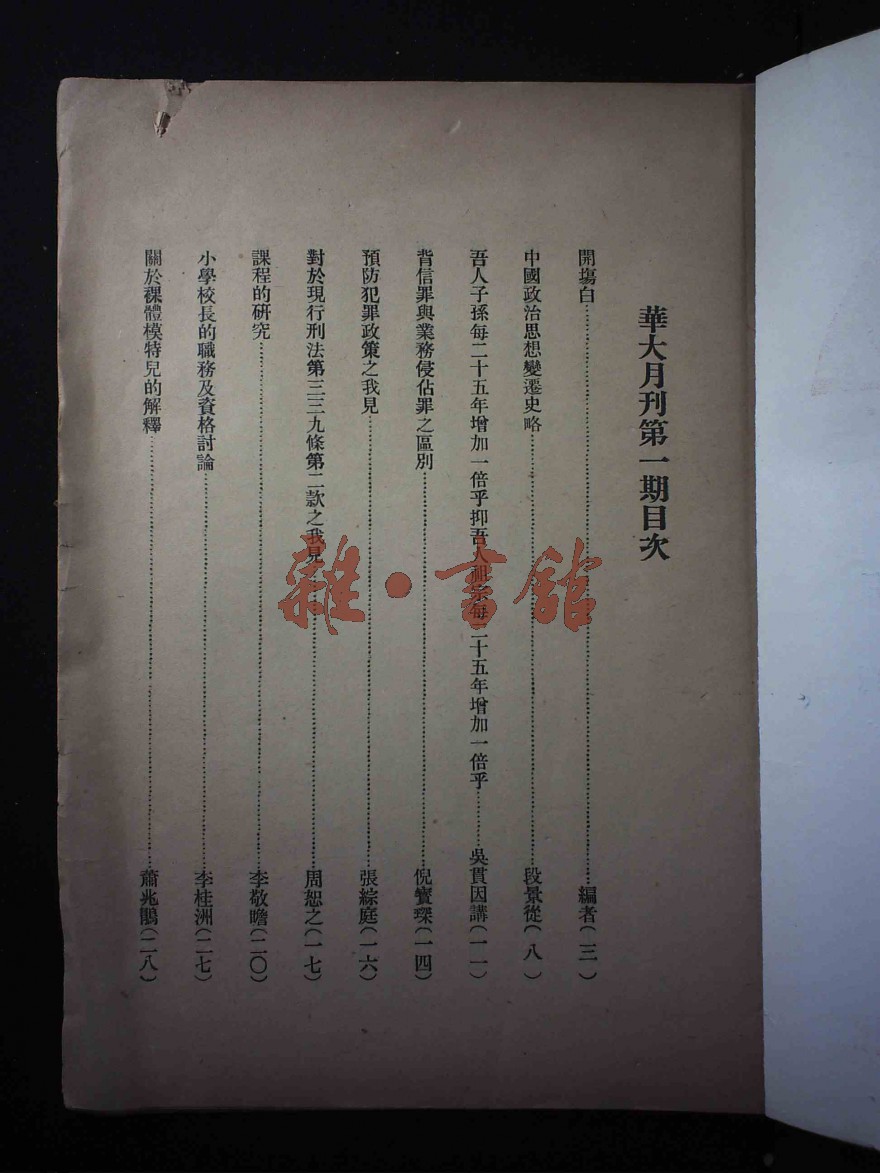 華大月刊第一期目次
開塲白……編者(三)
中國政治思想變遷史略……段景從(八)
吾人子孫每二十五年增加一倍乎抑吾人祖宗每二十五年增加一倍乎……吳貫因講(一一)
背信罪與業務侵佔罪之區別……倪寶琛(一四)
預防犯罪政策之我見……張綜庭(一六)
對於現行刑法第三三九條第二款之我見……周恕之(一七)
課程的研究……李敬瞻(二〇)
小學校長的職務及資格討論……李桂洲(二七)
關於裸體模特兒的解釋……蕭兆鵑(二八)
雜·書館